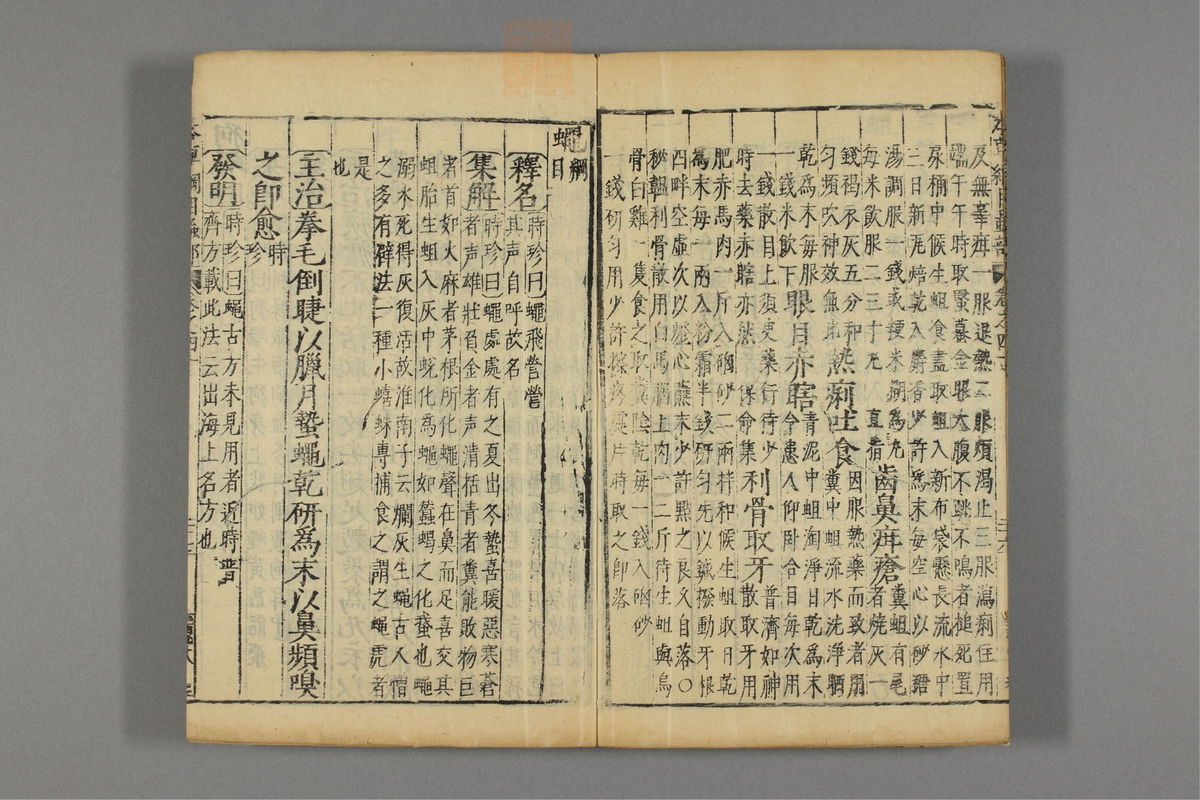 及無辜疳一服退熱二服煩渴止三服瀉痢住用
端午午時取蟇金眼大腹不跳不鳴者槌死置
尿桶中候生蛆食盡取蛆入新布袋懸長流水中
三日新瓦焙乾入麝香少許為末每空心以砂糖
湯調服一錢或粳米糊為丸
每米飲服二三十丸 齒鼻疳瘡糞蛆有尾者燒灰一
錢褐衣灰五分和
勻頻吹神效無比 熱痢吐食因服熱藥而致者用
糞中蛆流水洗淨晒
乾為末每服
一錢米飲下 眼目赤瞎青泥中蛆淘淨日乾為末
令患人仰臥合目每次用
一錢散目上須臾藥行待少
時去藥赤瞎亦然保命集 利骨取牙普濟如神
散取牙用
肥赤馬肉一斤入硇砂二兩拌和候生蛆取日乾
為末每一兩入粉霜半錢研勻先以鍼撥動牙根
四畔空虛次以燈心蘸末少許點之良久自落〇
秘韞利骨散用白馬腦上肉一二斤待生蛆與烏
骨白雞一隻食之取糞陰乾每一錢入硇砂
一錢研勻用少許擦疼處片時取之即落
蠅綱目
釋名時珍曰蠅飛營營
其聲自呼故名
集解時珍曰蠅處處有之夏出冬蟄喜暖惡寒蒼
者聲雄壯負金者聲清括青者糞能敗物巨
者首如火麻者茅根所化蠅聲在鼻而足喜交其
蛆胎生蛆入灰中蛻化為蠅如蠶蝎之化蛾也蠅
溺水死得灰復活故淮南子云爛灰生蠅古人憎
之多有辟法一種小蟢蛛專捕食之謂之蠅虎者
是
也
主治拳毛倒睫以臘月蟄蠅乾研為末以鼻頻嗅
之即愈時珍
發明時珍曰蠅古方未見用者近時普
濟方載此法云出海上名方也